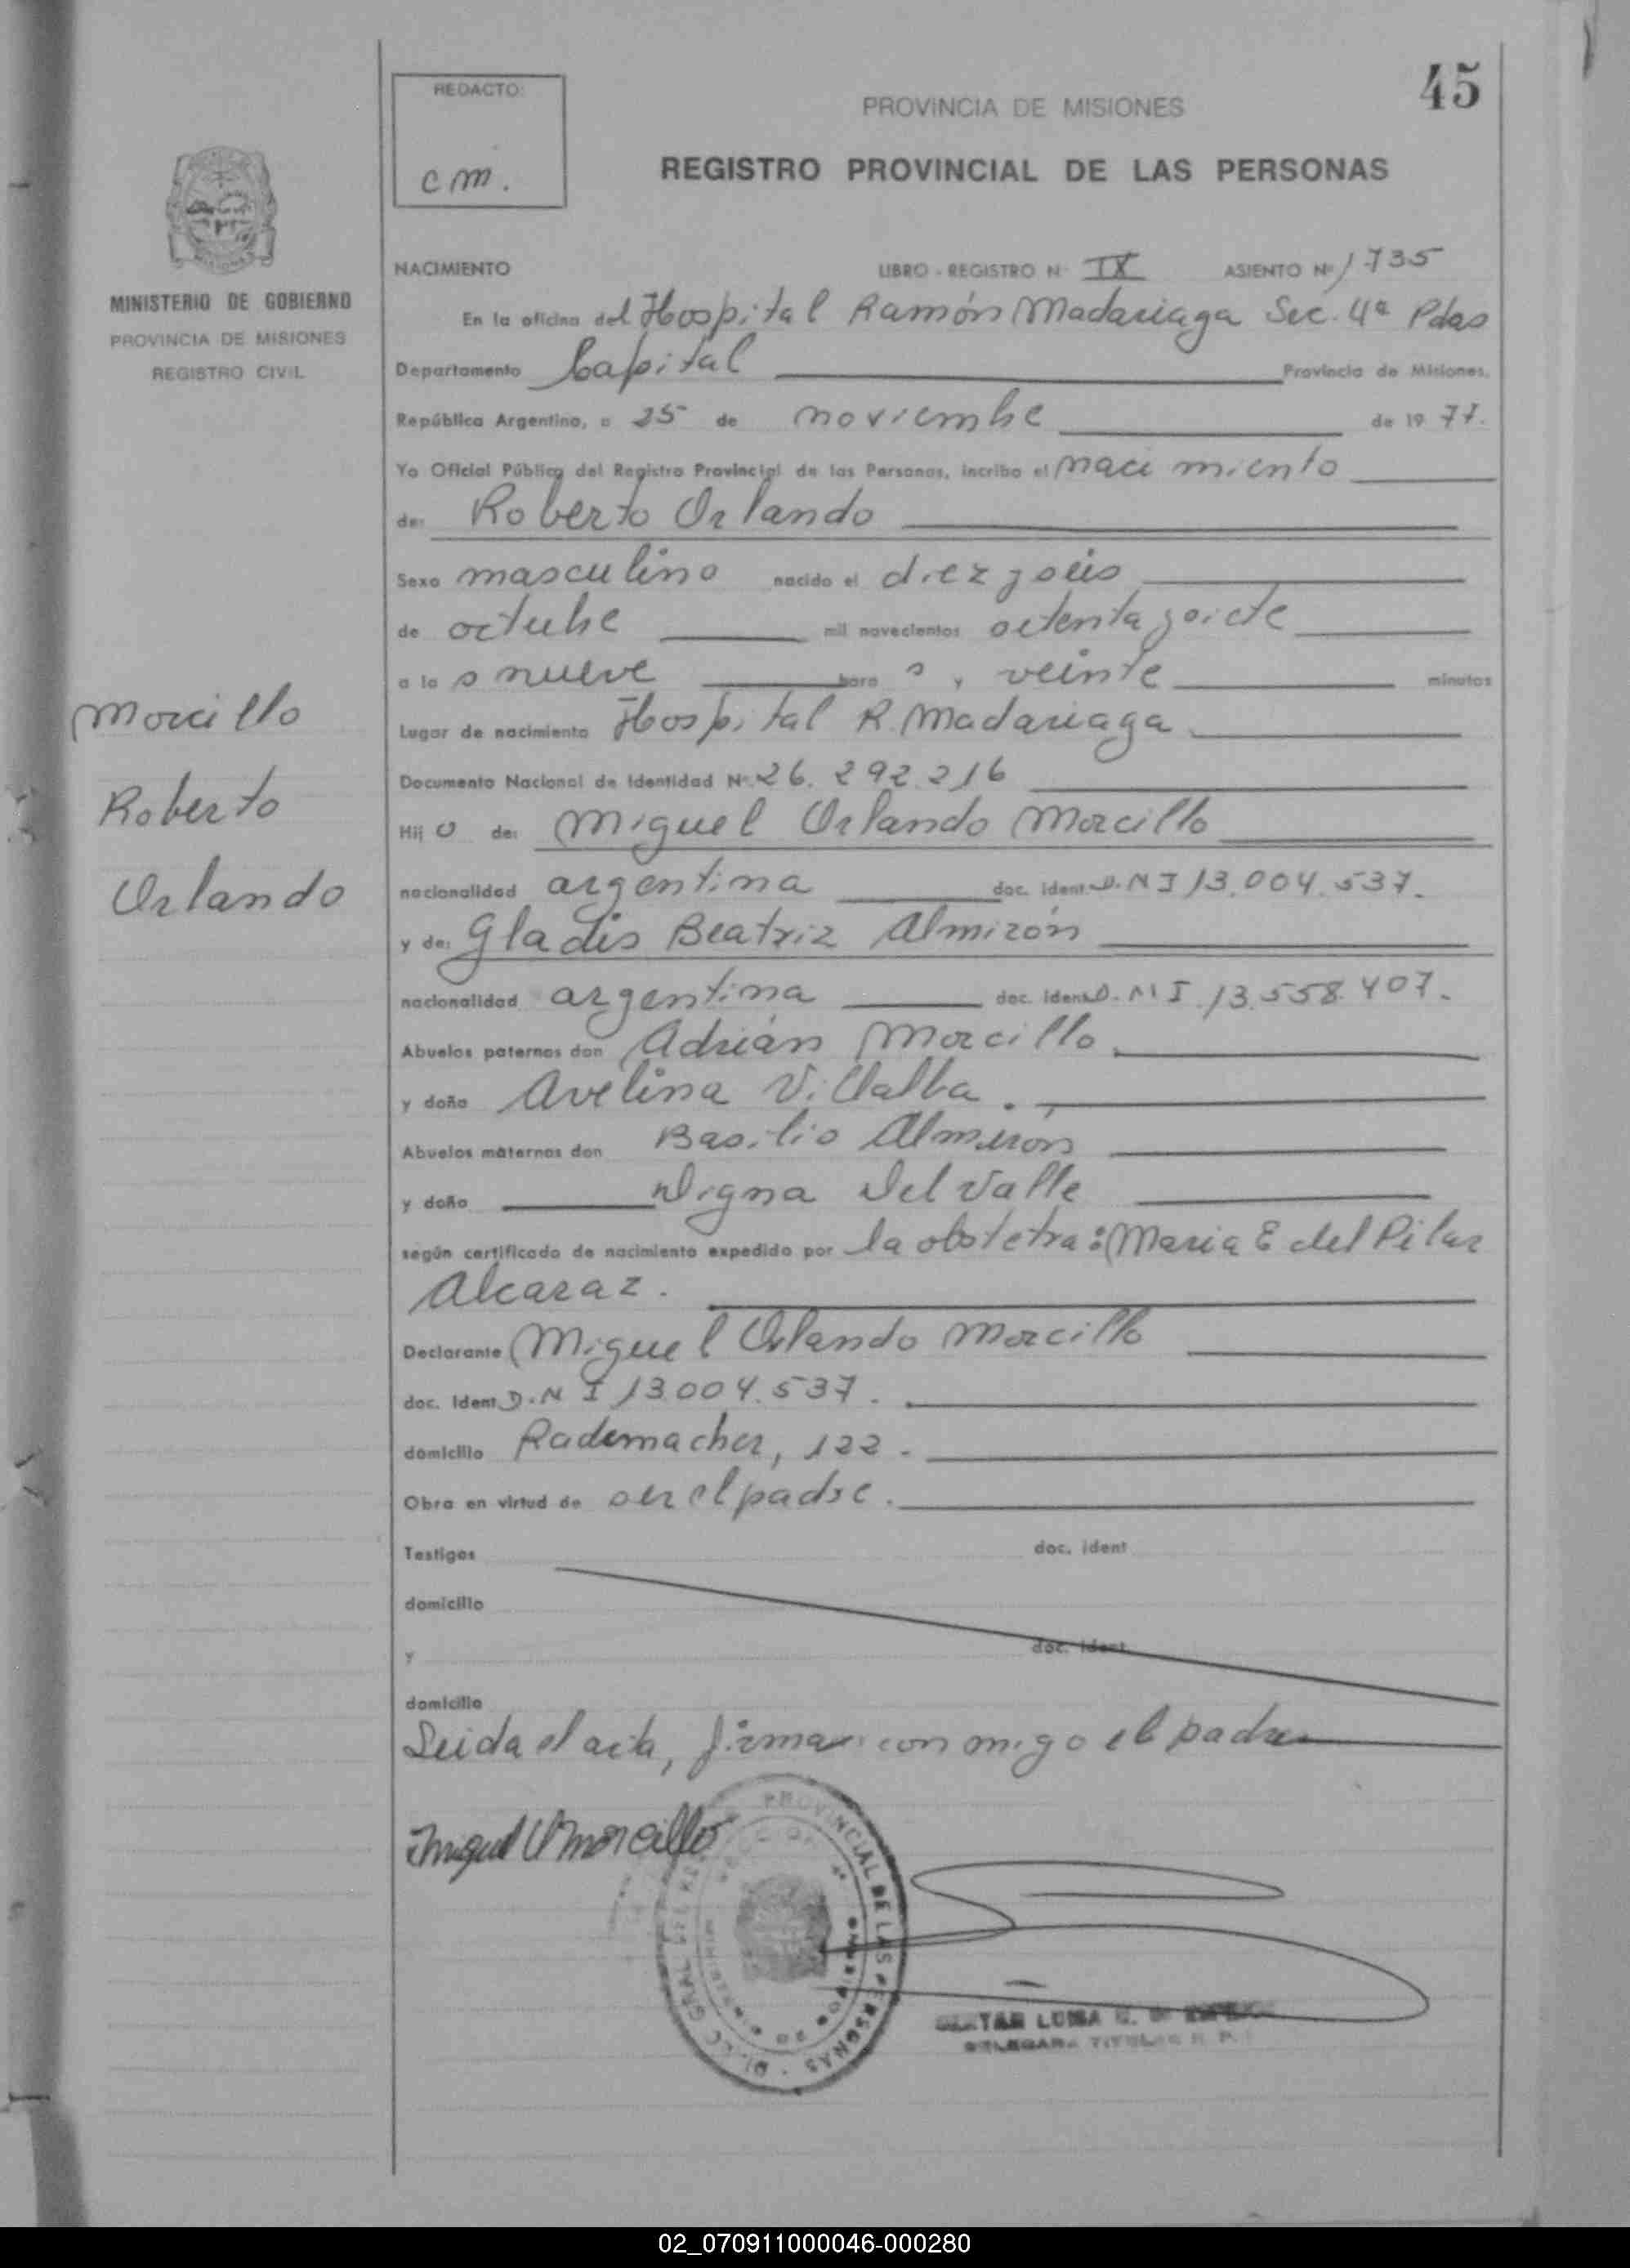 45
REDACTO:
cm.
PROVINCIA DE MISIONES
REGISTRO PROVINCIAL DE LAS PERSONAS
MINISTERIO DE GOBIERNO
PROVINCIA DE MISIONES
REGISTRO CIVIL
NACIMIENTO LIBRO - REGISTRO Nº IX ASIENTO Nº 1735
En la oficina del Hospital Ramón Madariaga Sec. 4ª Pdas
Departamento Capital Provincia de Misiones,
República Argentina, a 25 de noviembre de 19 77.
Yo Oficial Público del Registro Provincial de las Personas, incribo el nacimiento
de: Roberto Orlando
Sexo masculino nacido el diez y seis
de octubre mil novecientos setenta y siete
a la s nueve hora s y veinte minutos
Morcillo
Roberto
Orlando
Lugar de nacimiento Hospital R. Madariaga
Documento Nacional de Identidad Nº 26.292.216
Hij o de: Miguel Orlando Morcillo
nacionalidad argentina doc. ident. D.N I 13.004.537.
y de: Gladis Beatriz Almirón
nacionalidad argentina doc. ident. D.N I 13.558.407.
Abuelos paternos don Adrián Morcillo
y doña Avelina Villalba.
Abuelos maternos don Basilio Almirón
y doña Digna Del Valle
según certificado de nacimiento expedido por la obstetra: Maria E del Pilar
Alcaraz.
Declarante Miguel Orlando Morcillo
doc. ident D.N I 13.004.537.
domicilio Rademacher, 122.
Obra en virtud de ser el padre.
Testigos doc. ident
domicilio
y doc. ident
domicilio
Leida el acta, firma conmigo el padre
Miguel O Morcillo
PROVINCIAL DE LAS PERSONAS
LUISA
02_070911000046-000280